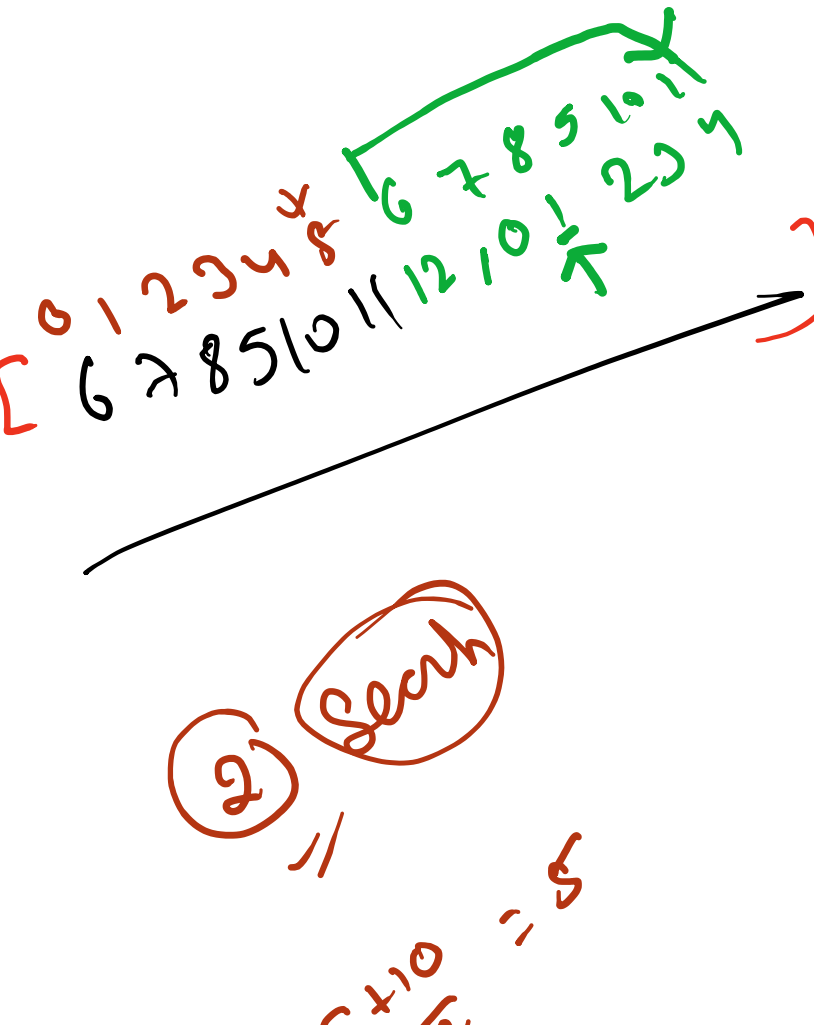 6 7 8 5 10 11
0 1 2 3 4 5
[ 6 7 8 5 10 11 12, 1 0 1 2 3 4
2 Search
+10 = 5